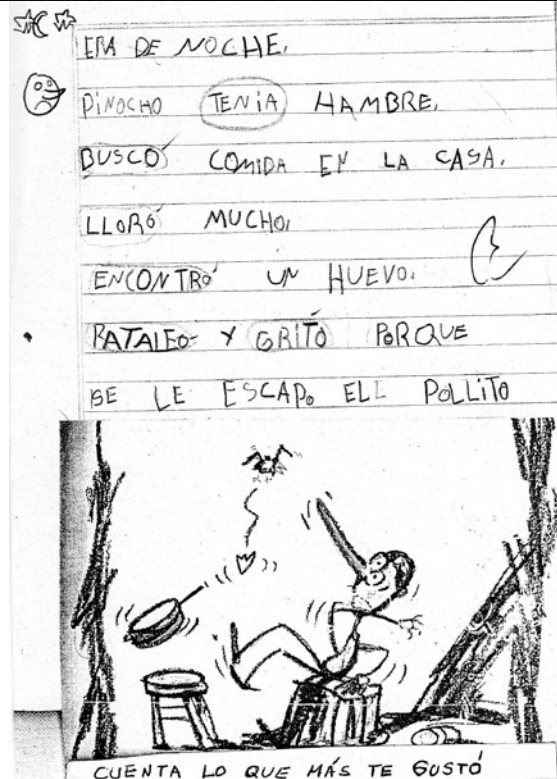 ERA DE NOCHE.
PINOCHO TENIA HAMBRE.
BUSCÓ COMIDA EN LA CASA.
LLORÓ MUCHO.
ENCONTRÓ UN HUEVO.
PATALEO Y GRITÓ PORQUE
SE LE ESCAPO ELL POLLITO
CUENTA LO QUE MÁS TE GUSTÓ